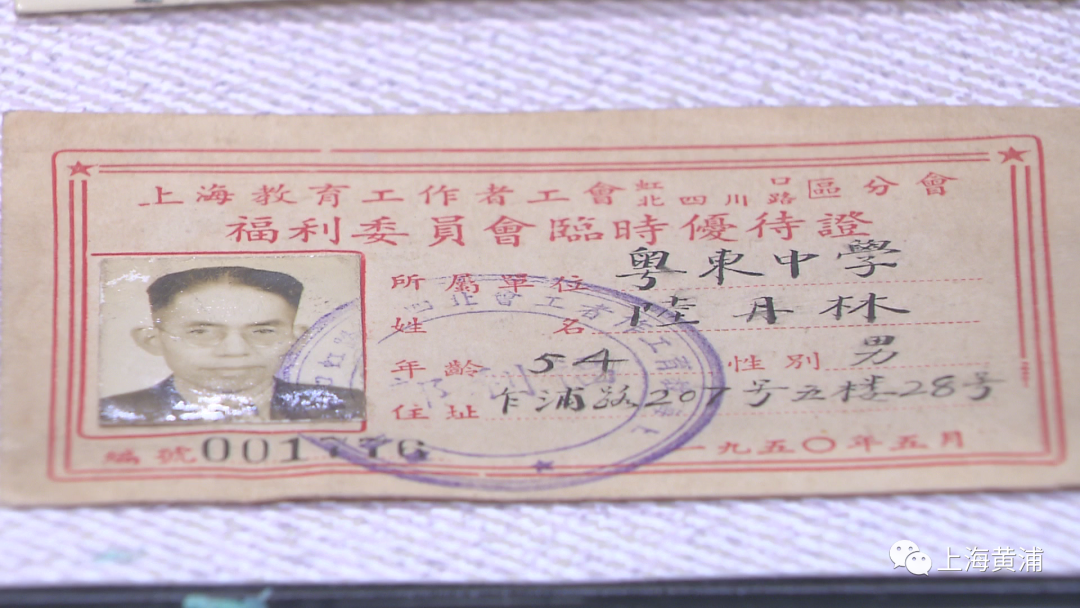 上海教育工作者工會虹口北四川路區分會
福利委員會臨時優待證
所屬單位 粤東中學
姓名 陸丹林
年齡 54 性別 男
住址 乍浦路207号五楼28号
編號 001776 一九五〇年五月
上海黄浦